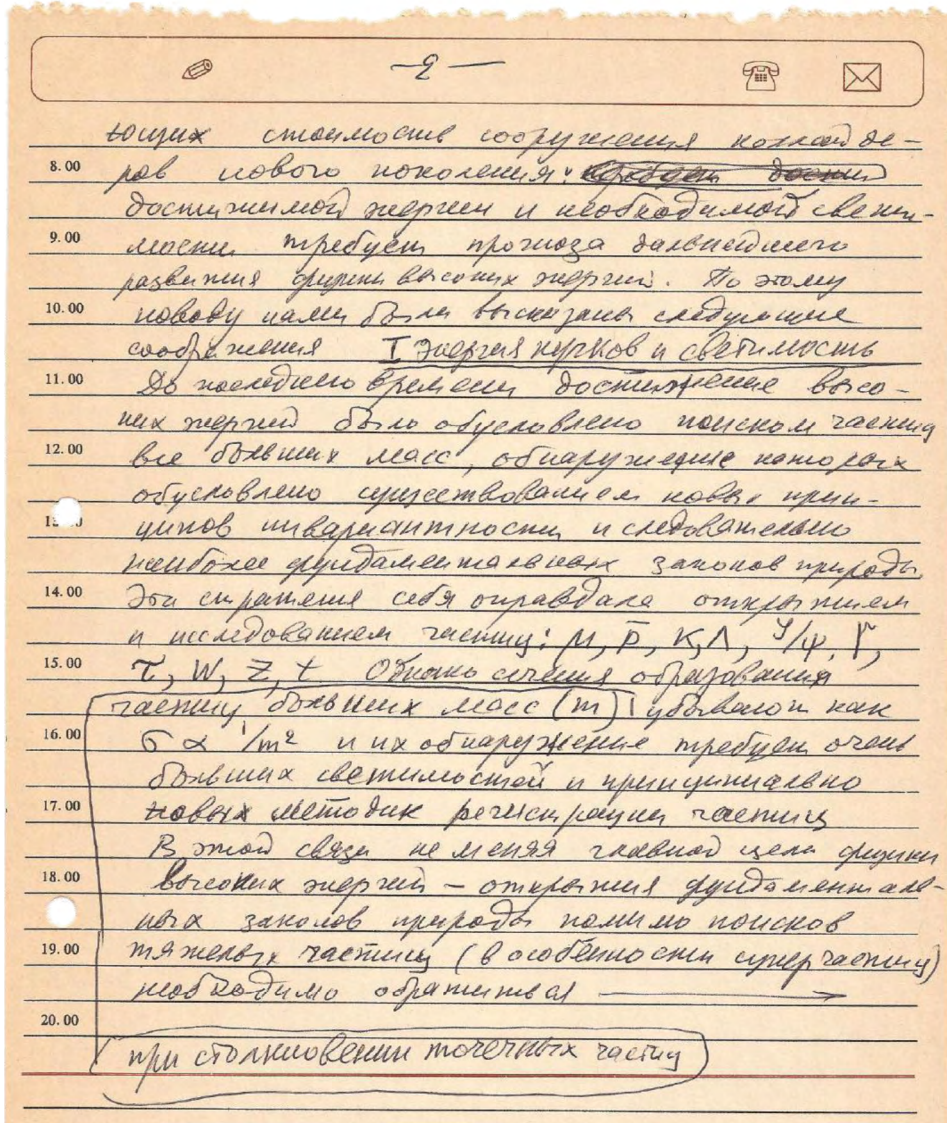 – 2 –
ющих стоимость сооружения коллайде-
8.00 ров нового поколения.
достижимой энергии и необходимой свети-
9.00 мости требует прогноза дальнейшего
развития физики высоких энергий. По этому
10.00 поводу нами были высказаны следующие
соображения I Энергия пучков и светимость
11.00 До последнего времени достижение высо-
ких энергий было обусловлено поиском частиц
12.00 все больших масс, обнаружение которых
обусловлено существованием новых прин-
ципов инвариантности и следовательно
наиболее фундаментальных законов природы.
14.00 Эта стратегия себя оправдала открытием
и исследованием частиц: μ, p̄, K, Λ, J/ψ, Υ,
15.00 τ, W, Z, t Однако сечения образования
частиц больших масс (m) убывают как
16.00 σ ∝ 1/m² и их обнаружение требует очень
больших светимостей и принципиально
17.00 новых методик регистрации частиц
В этой связи не меняя главной цели физики
18.00 высоких энергий – открытия фундаменталь-
ных законов природы помимо поисков
19.00 тяжелых частиц (в особенности суперчастиц)
необходимо обратиться
20.00
при столкновении точечных частиц